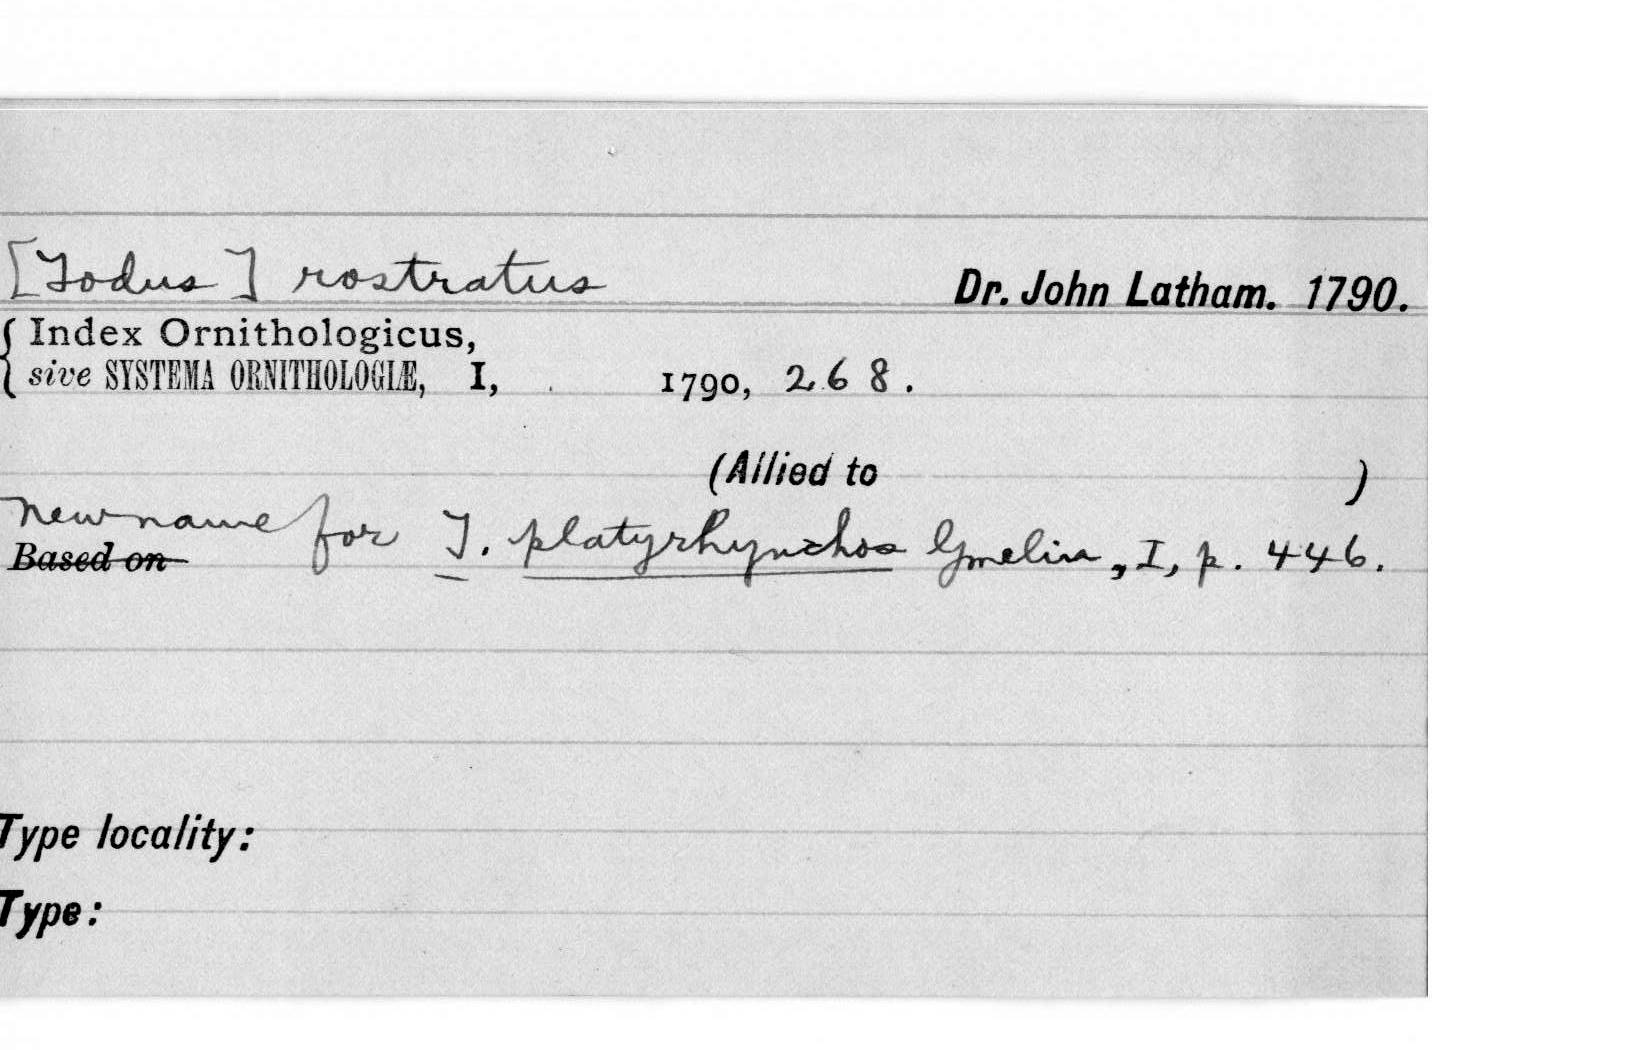 [Todus] rostratus Dr. John Latham. 1790.
{ Index Ornithologicus,
sive SYSTEMA ORNITHOLOGIÆ, I, 1790, 268.
(Allied to )
New name for T. platyrhynchos Gmelin, I, p. 446.
Based on
Type locality:
Type: